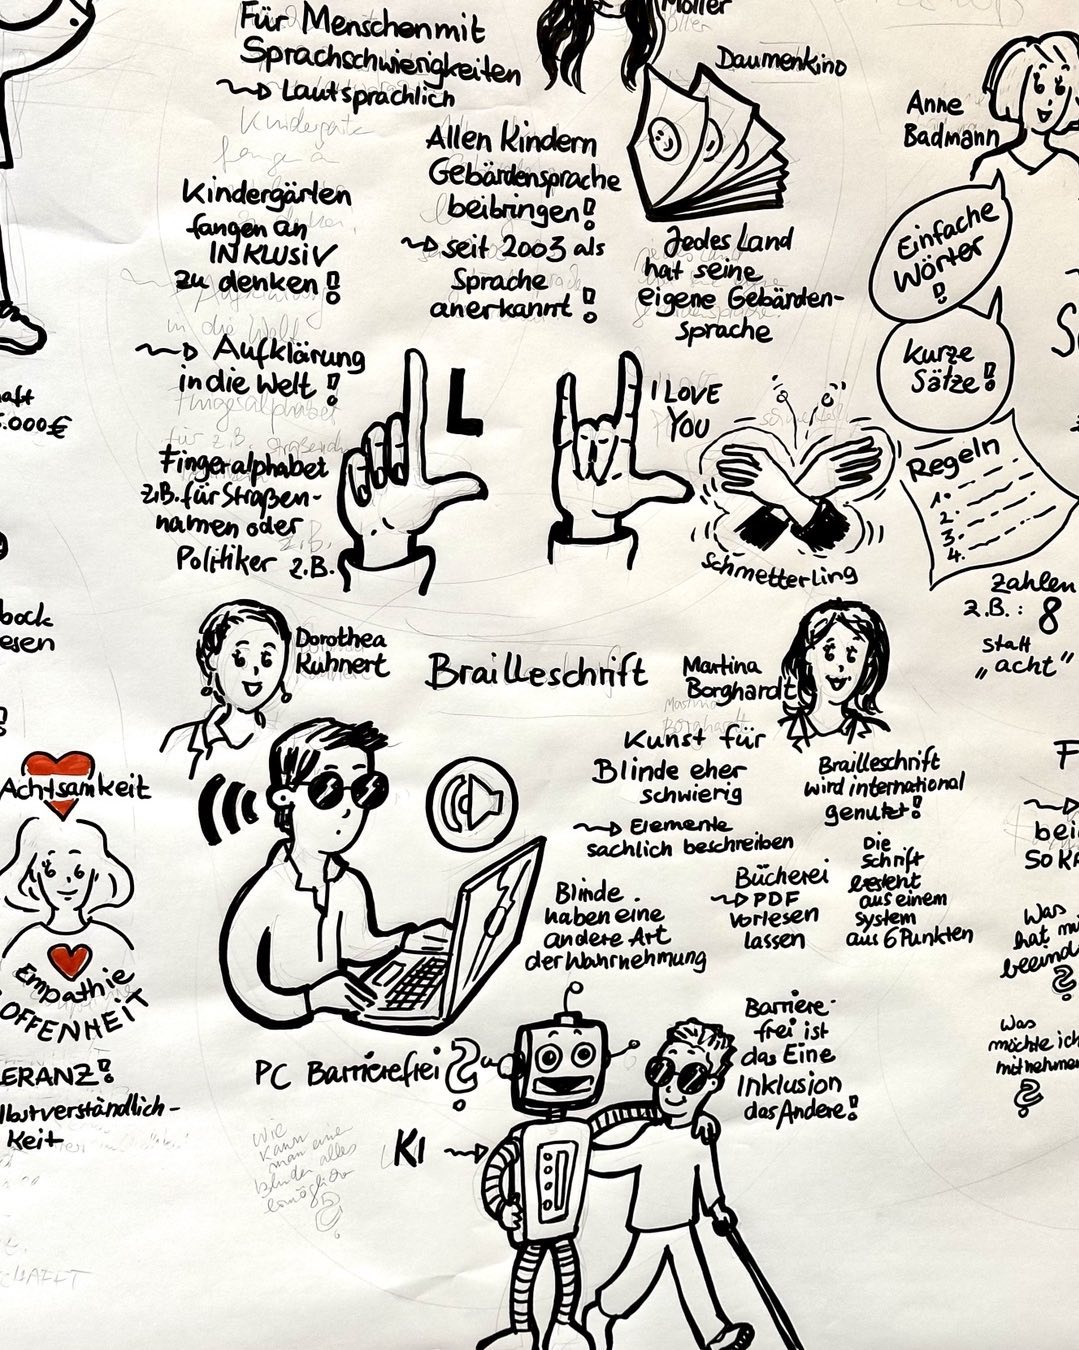 Für Menschen mit
Sprachschwierigkeiten
Lautsprachlich
Kindergärten
fangen an
INKLUSIV
zu denken!
Aufklärung
in die Welt!
Fingeralphabet
z.B. für Straßen-
namen oder
Politiker z.B.
Allen Kindern
Gebärdensprache
beibringen!
seit 2003 als
Sprache
anerkannt!
Möller
Daumenkino
Jedes Land
hat seine
eigene Gebärden-
sprache
L
I LOVE
YOU
Schmetterling
Anne
Badmann
Einfache
Wörter
!
Kurze
Sätze!
Regeln
1.
2.
3.
4.
Zahlen
z.B.: 8
statt
„acht"
5.000€
Dorothea
Kuhnert
Brailleschrift
Martina
Borghardt
Kunst für
Blinde eher
schwierig
Elemente
sachlich beschreiben
Blinde
haben eine
andere Art
der Wahrnehmung
Bücherei
PDF
vorlesen
lassen
Brailleschrift
wird international
genutzt!
Die
Schrift
besteht
aus einem
System
aus 6 Punkten
Achtsamkeit
Empathie
OFFENHEIT
ERANZ!
lbstverständlich-
keit
PC Barrierefrei?
KI
Barriere-
frei ist
das Eine
Inklusion
das Andere!
Was
Was
möchte ich
mitnehmen
?
Wie
kann
man eine
alles
?